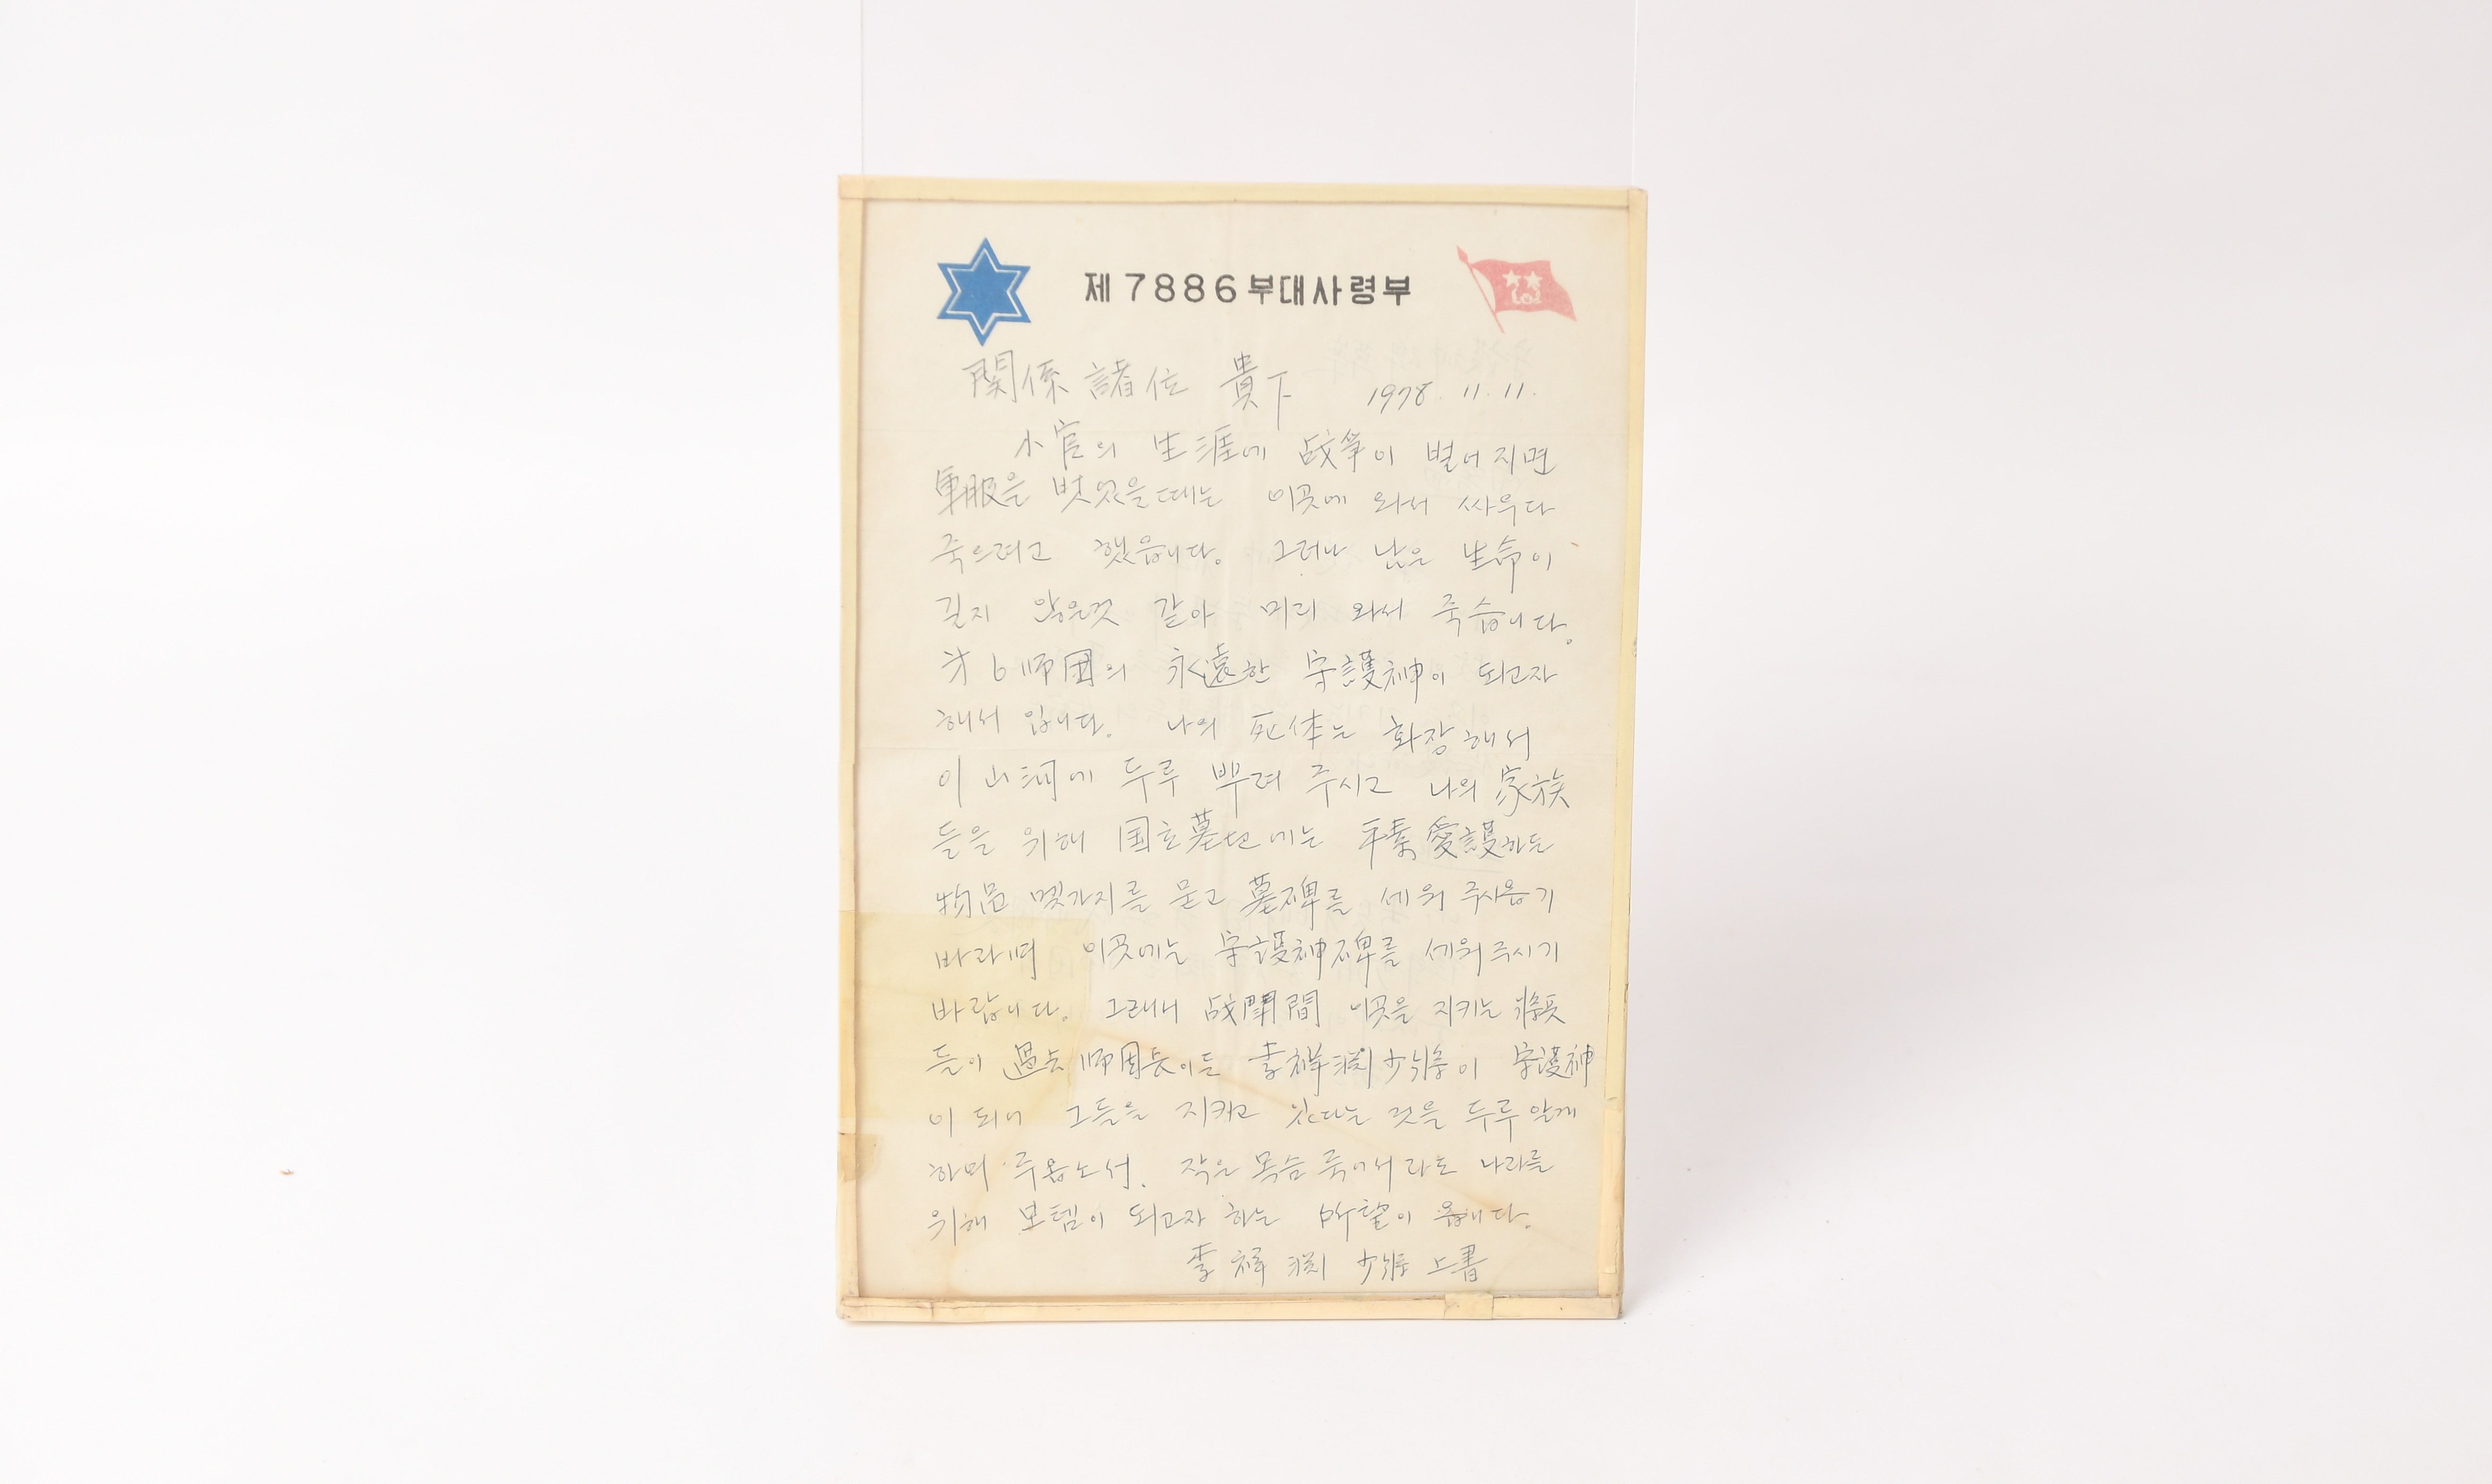 제7886부대사령부
関係 諸位 貴下 1978. 11. 11.
小官의 生涯에 战爭이 벌어지면
軍服을 벗었을때는 이곳에 와서 싸우다
죽으려고 했읍니다. 그러나 남은 生命이
길지 않은것 같아 미리 와서 죽습니다.
才6师団의 永遠한 守護神이 되고자
해서 입니다. 나의 死体는 화장해서
이 山河에 두루 뿌려 주시고 나의 家族
들을 위해 国立墓地에는 平素 愛護하든
物品 몇가지를 묻고 墓碑를 세워 주시옵기
바라며 이곳에는 守護神碑를 세워주시기
바랍니다. 그래서 战闘間 이곳을 지키는 將兵
들이 過去 师団長이든 李祥渊 少将이 守護神
이 되어 그들을 지키고 있다는 것을 두루 알게
하여 주옵소서. 작은 목숨 죽어서라도 나라를
위해 보탬이 되고자 하는 所望이 옵니다.
李祥渊 少將 上書